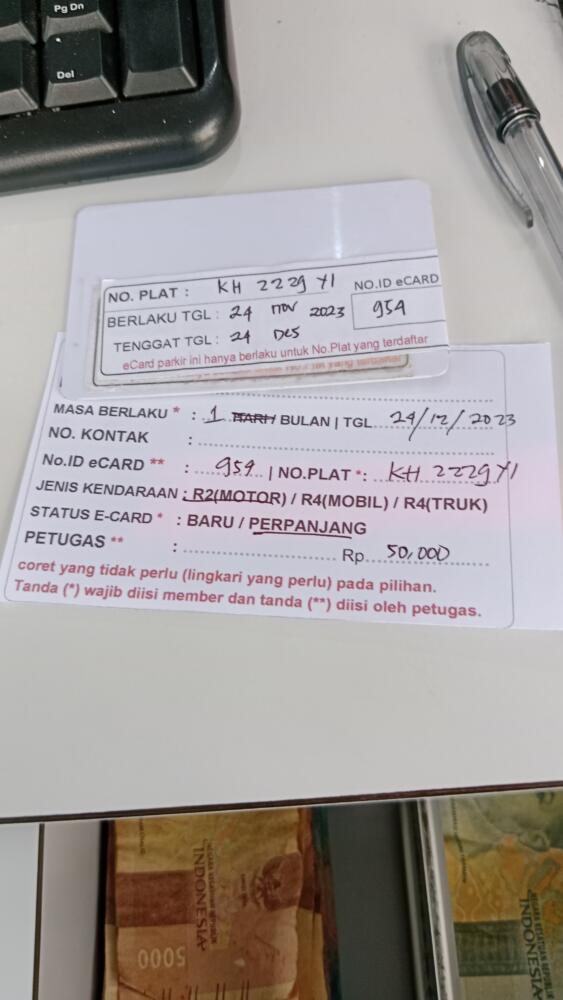 Pg Dn
Del
NO. PLAT : KH 2229 YI
NO.ID eCARD
BERLAKU TGL : 24 nov 2023
954
TENGGAT TGL : 24 Des
eCard parkir ini hanya berlaku untuk No.Plat yang terdaftar
MASA BERLAKU * : 1 HARI / BULAN | TGL 24/12/2023
NO. KONTAK :
No.ID eCARD ** : 954 | NO.PLAT *: KH 2229 YI
JENIS KENDARAAN : R2(MOTOR) / R4(MOBIL) / R4(TRUK)
STATUS E-CARD * : BARU / PERPANJANG
PETUGAS ** : Rp. 50,000
coret yang tidak perlu (lingkari yang perlu) pada pilihan.
Tanda (*) wajib diisi member dan tanda (**) diisi oleh petugas.
INDONESIA
5000
INDONESIA